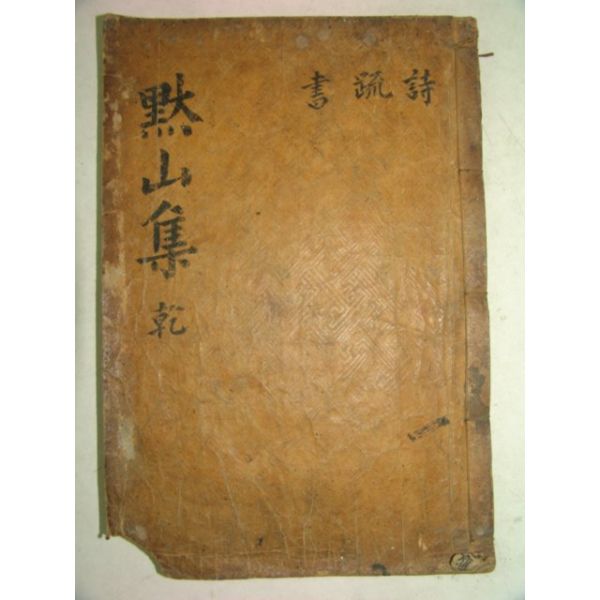 詩疏書
默山集 乾